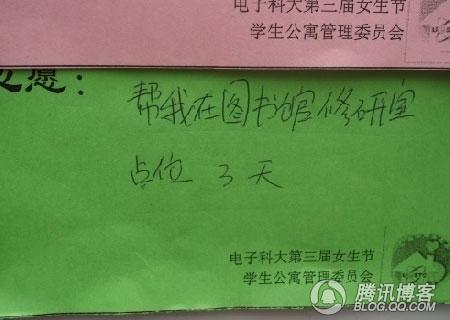 电子科大第三届女生节
学生公寓管理委员会
愿：
帮我在图书馆修研室
占位 3 天
电子科大第三届女生节
学生公寓管理委员会
腾讯博客
BLOG.QQ.COM